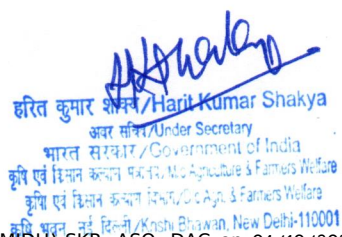 हरित कुमार शाक्य/Harit Kumar Shakya
अवर सचिव/Under Secretary
भारत सरकार/Government of India
कृषि एवं किसान कल्याण Agriculture & Farmers Welfare
कृषि एवं किसान कल्याण विभाग/ Agri. & Farmers Welfare
कृषि भवन, नई दिल्ली/Krishi Bhawan, New Delhi-110001